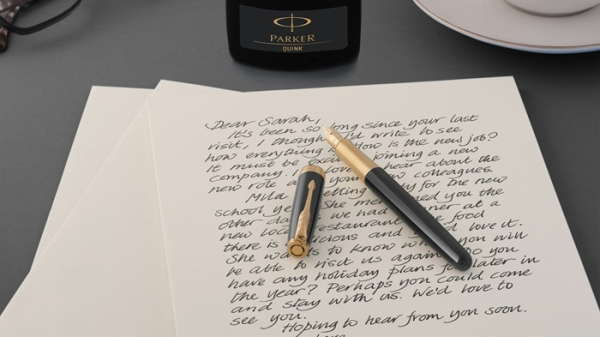 PARKER
QUINK
Dear Sarah,
It's been so long since your last
visit, I though I'd write to see
how everything is How is the new job?
It must be joining a new
company. I hear about the
new role new colleagues.
Mila getting for the new
school She you the
other we had at a
new local restaurant food
there is delicious and love it.
She to know when you will
be able to visit us again. Do you
have any holiday plans for later in
the year? Perhaps you could come
and stay with us. We'd love to
see you.
Hoping to hear from you soon.